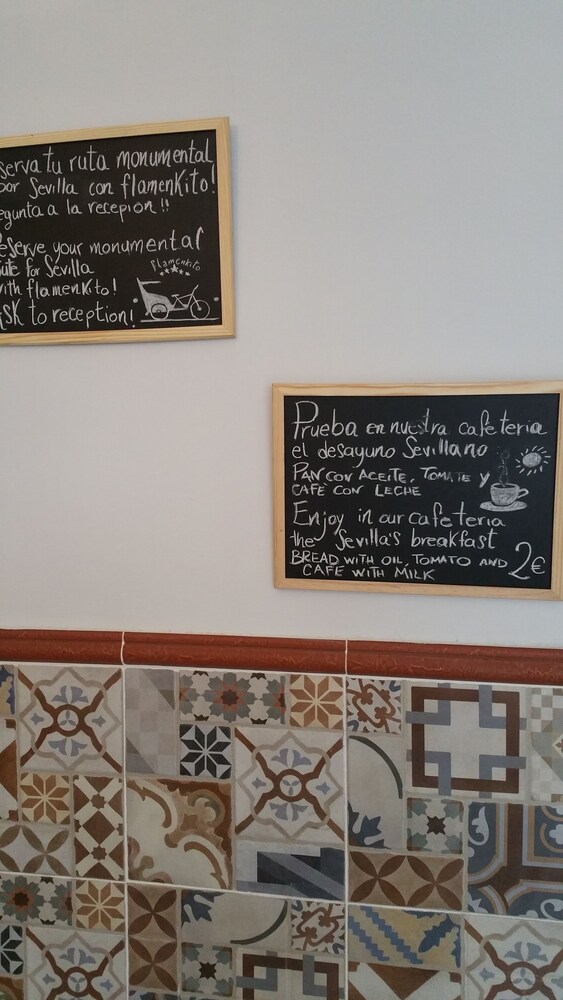 serva tu ruta monumental
por Sevilla con flamenkito!
egunta a la recepion!!
eserve your monumental
ute for Sevilla
with flamenkito!
ask to reception!
flamenkito
Prueba en nuestra cafeteria
el desayuno Sevillano
PAN CON ACEITE, TOMATE y
CAFE CON LECHE
Enjoy in our cafeteria
the Sevilla's breakfast
BREAD WITH OIL, TOMATO AND
CAFE WITH MILK
2€